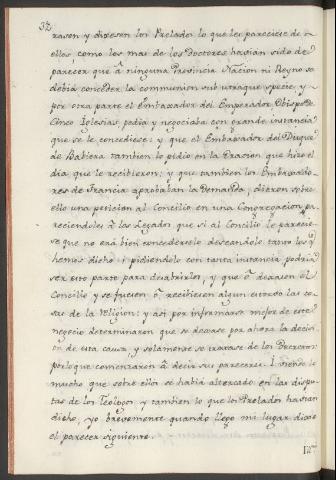 32
rasen y dixesen los Prelados lo que les pareciese de
ellos, como los mas de los Doctores havian sido de
parecer que â ninguna Provincia Nacion ni Reyno se
debia conceder la communion sub utraque specie; y
por otra parte el Embaxador del Emperador Obispo de
Cinco Iglesias, pedia y negociaba con grande instancia
que se le concediese; y que el Embaxador del Duque
de Babiera tambien lo pidio en la Orasion que hizo el
dia que le recibieron; y que tambien los Embaxado
res de Francia aprobaban la Demanda; dieron sobre
ello una peticion al Concilio en una Congregacion pa
reciendoles â los Legados que si al Concilio le parecie
se que no era bien concederselo deseandolo tanto los q̃
hemos dicho i pidiendolo con tanta instancia podria
ser esto parte para desabrirlos, y que ô dexasen el
Concilio y se fuesen ô recibiesen algun estorvo las co
sas de la Religion; y asi por informarse mejor de este
negocio determinaron que se dexase por ahora la decisi
on de esta causa, y solamente se tratase de los Decretos
por lo que comenzaron â decir su parecer. I siendo lo
mucho que sobre ello se habia altercado en las dispu
tas de los Teologos y tambien lo que los Prelados havian
dicho, yo brevemente quando llego mi lugar dixe
el parecer siguiente.